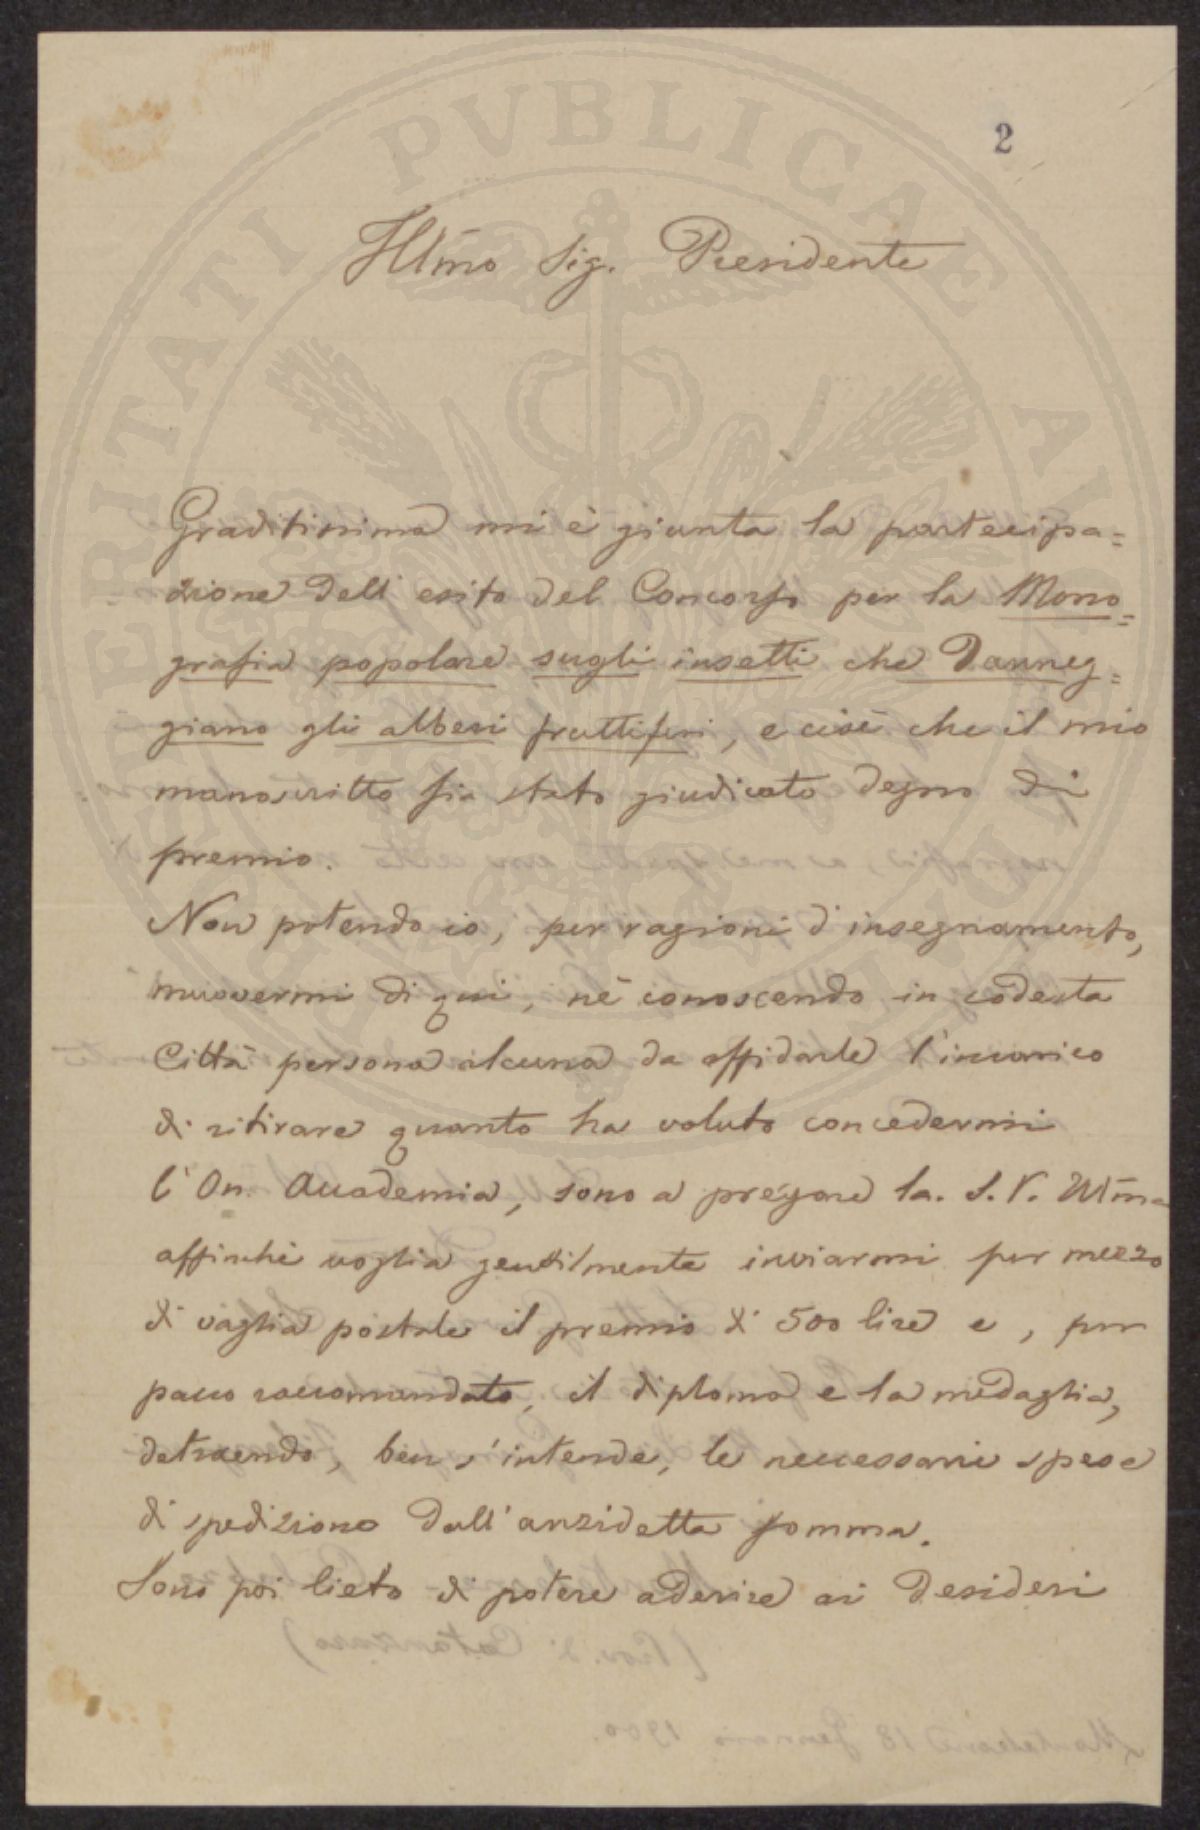 2
Illm̄o Sig. Presidente
Graditissima mi è giunta la partecipa=
zione dell'esito del Concorso per la Mono=
grafia popolare sugli insetti che danneg=
giano gli alberi fruttiferi, e cioè che il mio
manoscritto sia stato giudicato degno di
premio.
Non potendo io, per ragioni d'insegnamento,
muovermi di qui, nè conoscendo in codesta
Città persona alcuna da affidarle l'incarico
di ritirare quanto ha voluto concedermi
l'On. Accademia, sono a pregare la. S. V. Illm̄a
affinchè voglia gentilmente inviarmi per mezzo
di vaglia postale il premio di 500 lire e, per
pacco raccomandato, il diploma e la medaglia,
detraendo, ben s'intende, le necessarie spese
di spedizione dall'anzidetta somma.
Sono poi lieto di potere aderire ai desideri